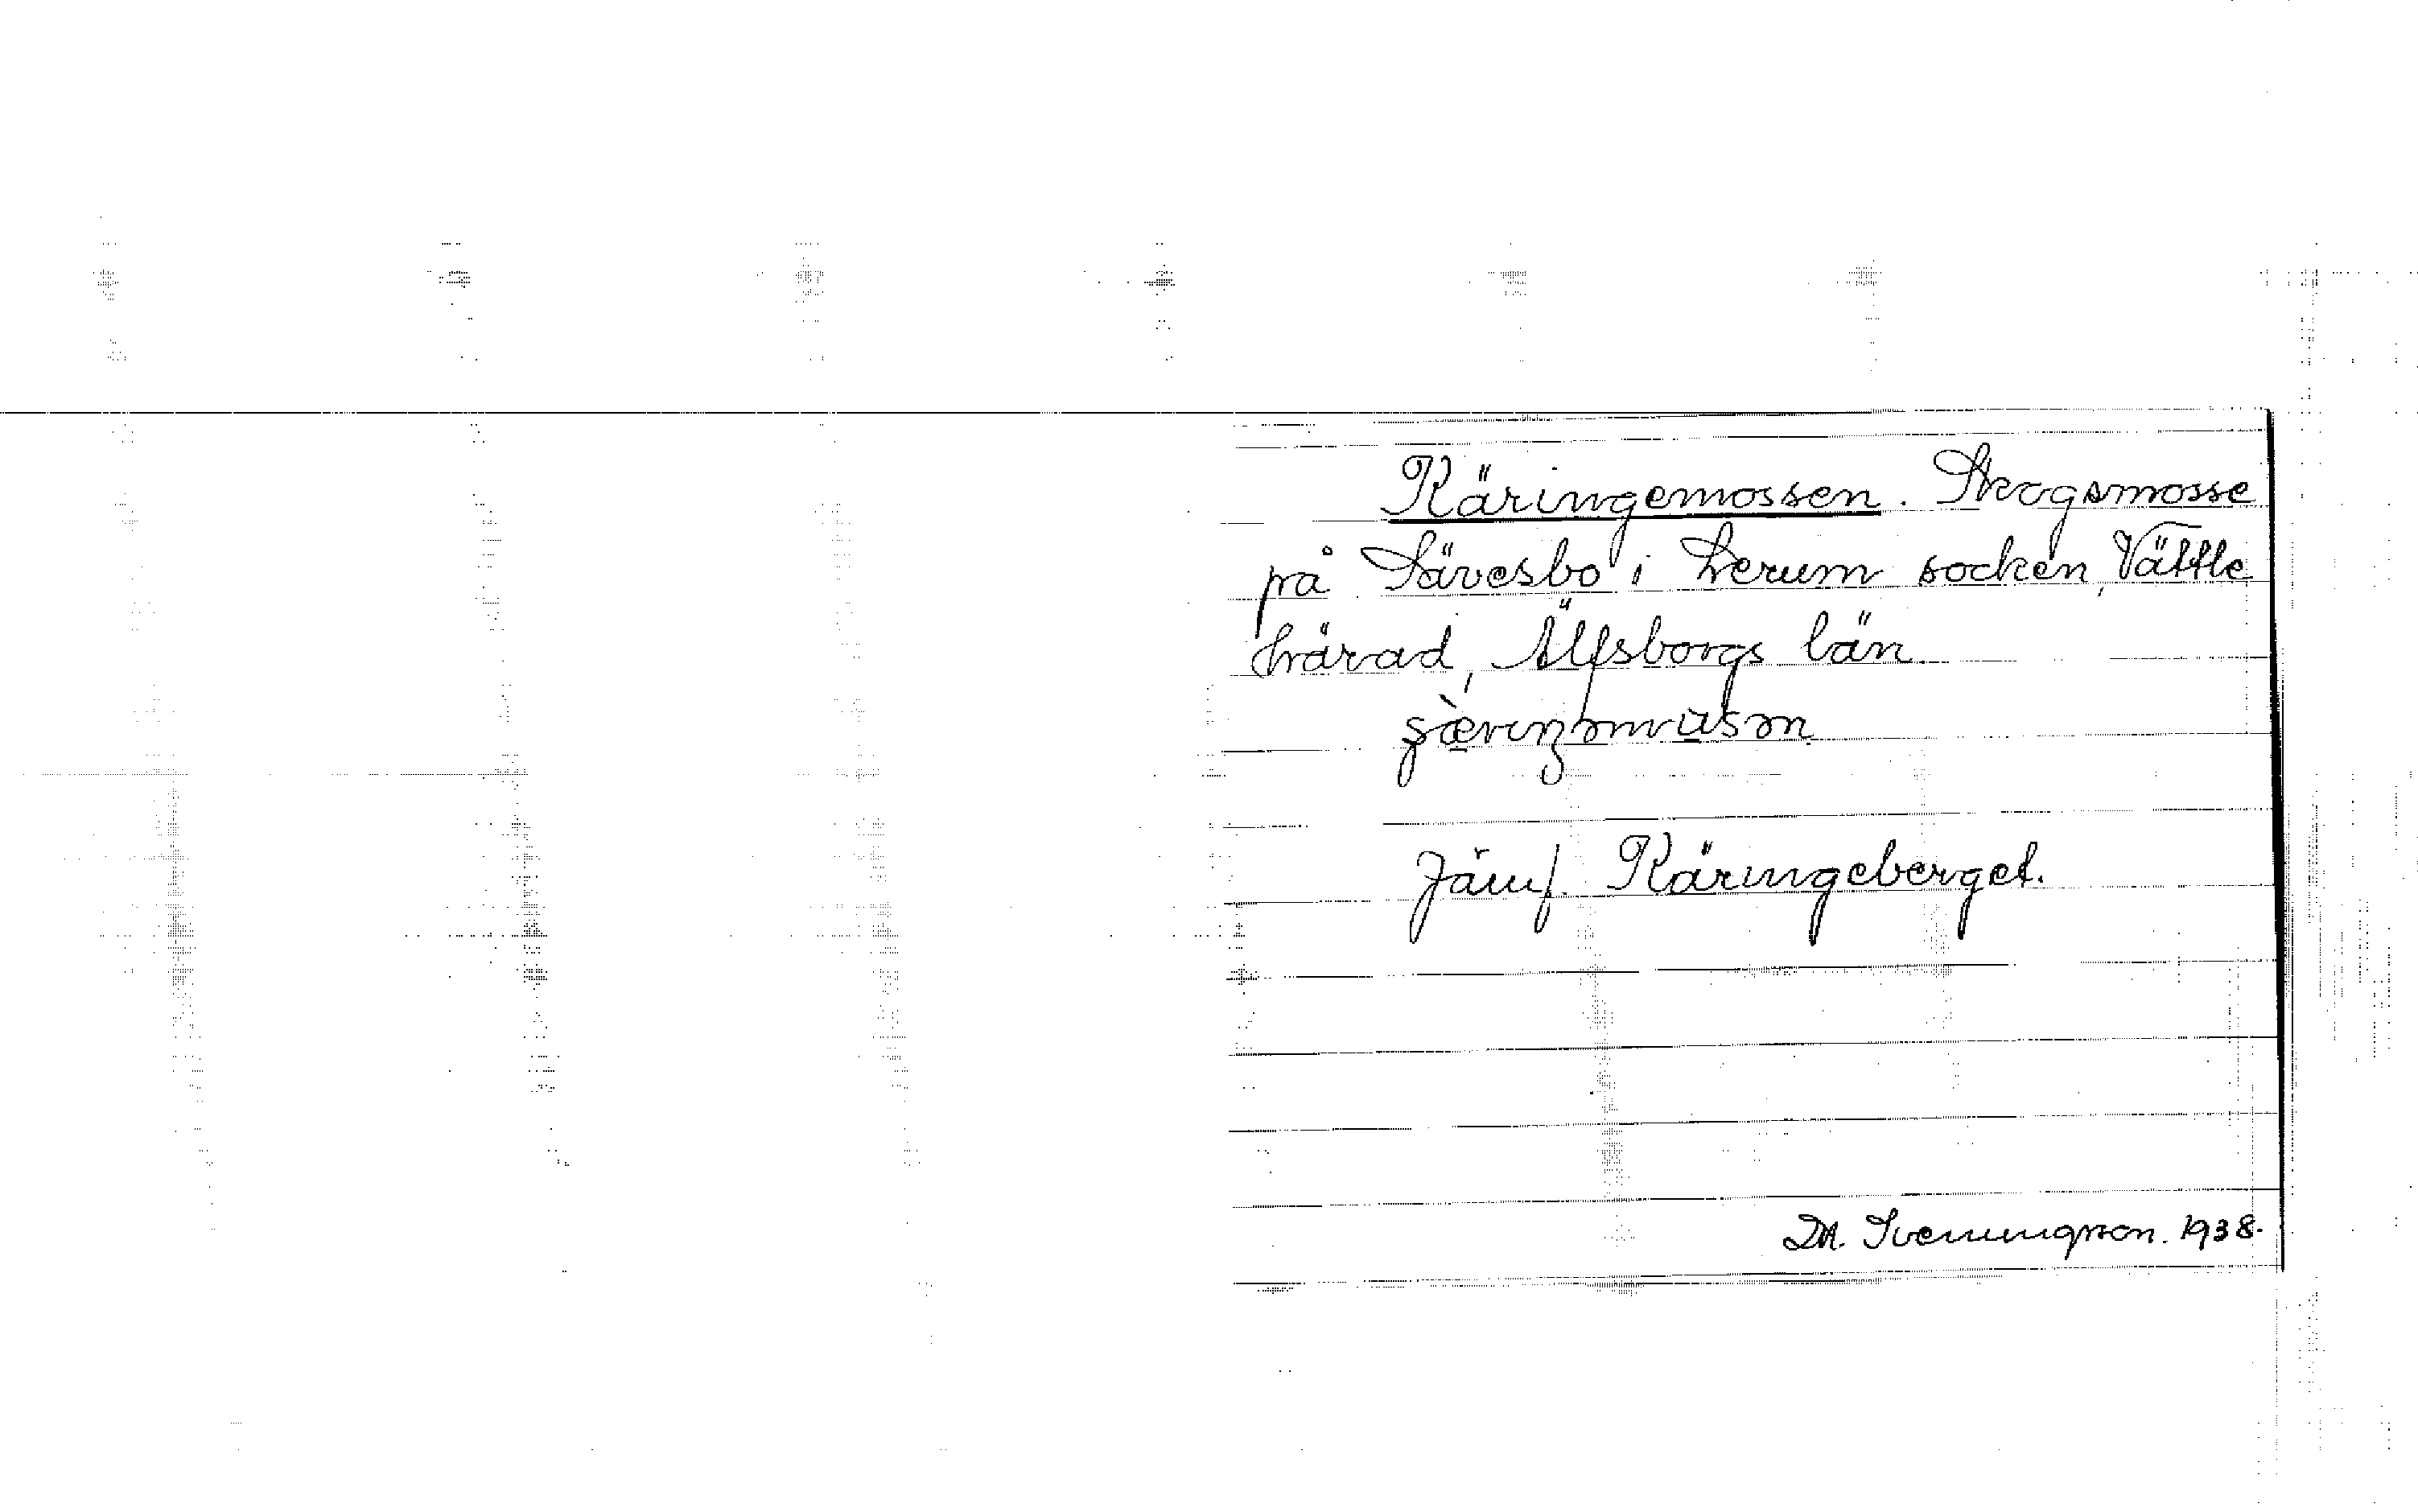 Käringemossen. Skogsmosse
på Sävesbo i Lerum socken, Vättle
härad, Älfsborgs län
Jämf. Käringeberget.
DA. Svenungsson. 1938.